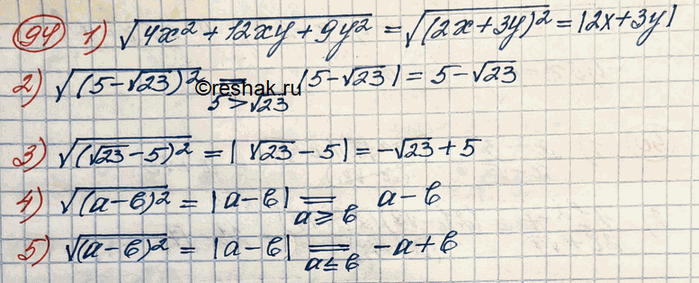 94 1) √(4x² + 12xy + 9y²) = √((2x+3y)²) = |2x+3y|
2) √((5-√23)²) = |5-√23| = 5-√23
5>√23
©reshak.ru
3) √((√23-5)²) = |√23-5| = -√23+5
4) √((a-b)²) = |a-b| = a-b
a≥b
5) √((a-b)²) = |a-b| = -a+b
a≤b